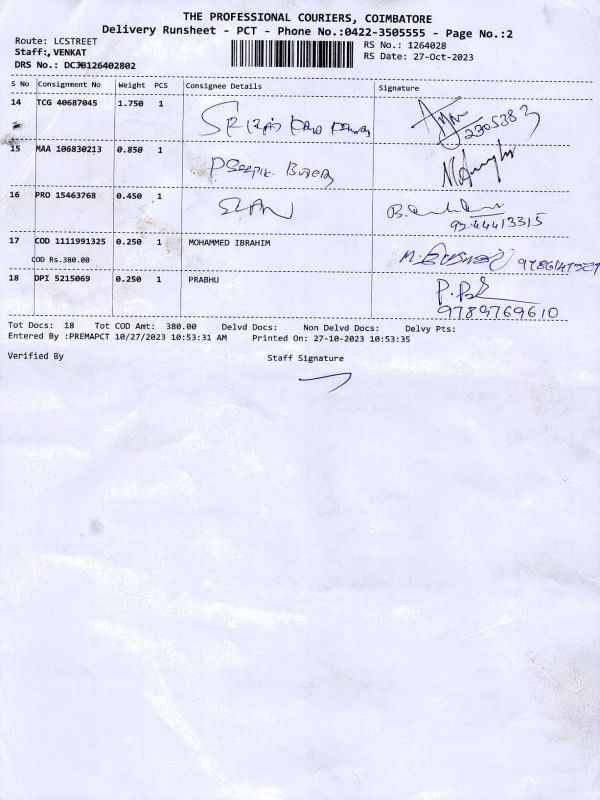 THE PROFESSIONAL COURIERS, COIMBATORE
Delivery Runsheet - PCT - Phone No.:0422-3505555 - Page No.:2
Route: LCSTREET
Staff:, VENKAT
DRS No.: DCJB126402802
RS No.: 1264028
RS Date: 27-Oct-2023
S No Consignment No Weight PCS Consignee Details Signature
14 TCG 40687045 1.750 1
2305383
15 MAA 106830213 0.850 1
16 PRO 15463768 0.450 1
17 COD 1111991325 0.250 1 MOHAMMED IBRAHIM
COD Rs.380.00
18 DPI 5215069 0.250 1 PRABHU
9789769610
Tot Docs: 18 Tot COD Amt: 380.00 Delvd Docs: Non Delvd Docs: Delvy Pts:
Entered By :PREMAPCT 10/27/2023 10:53:31 AM Printed On: 27-10-2023 10:53:35
Verified By Staff Signature